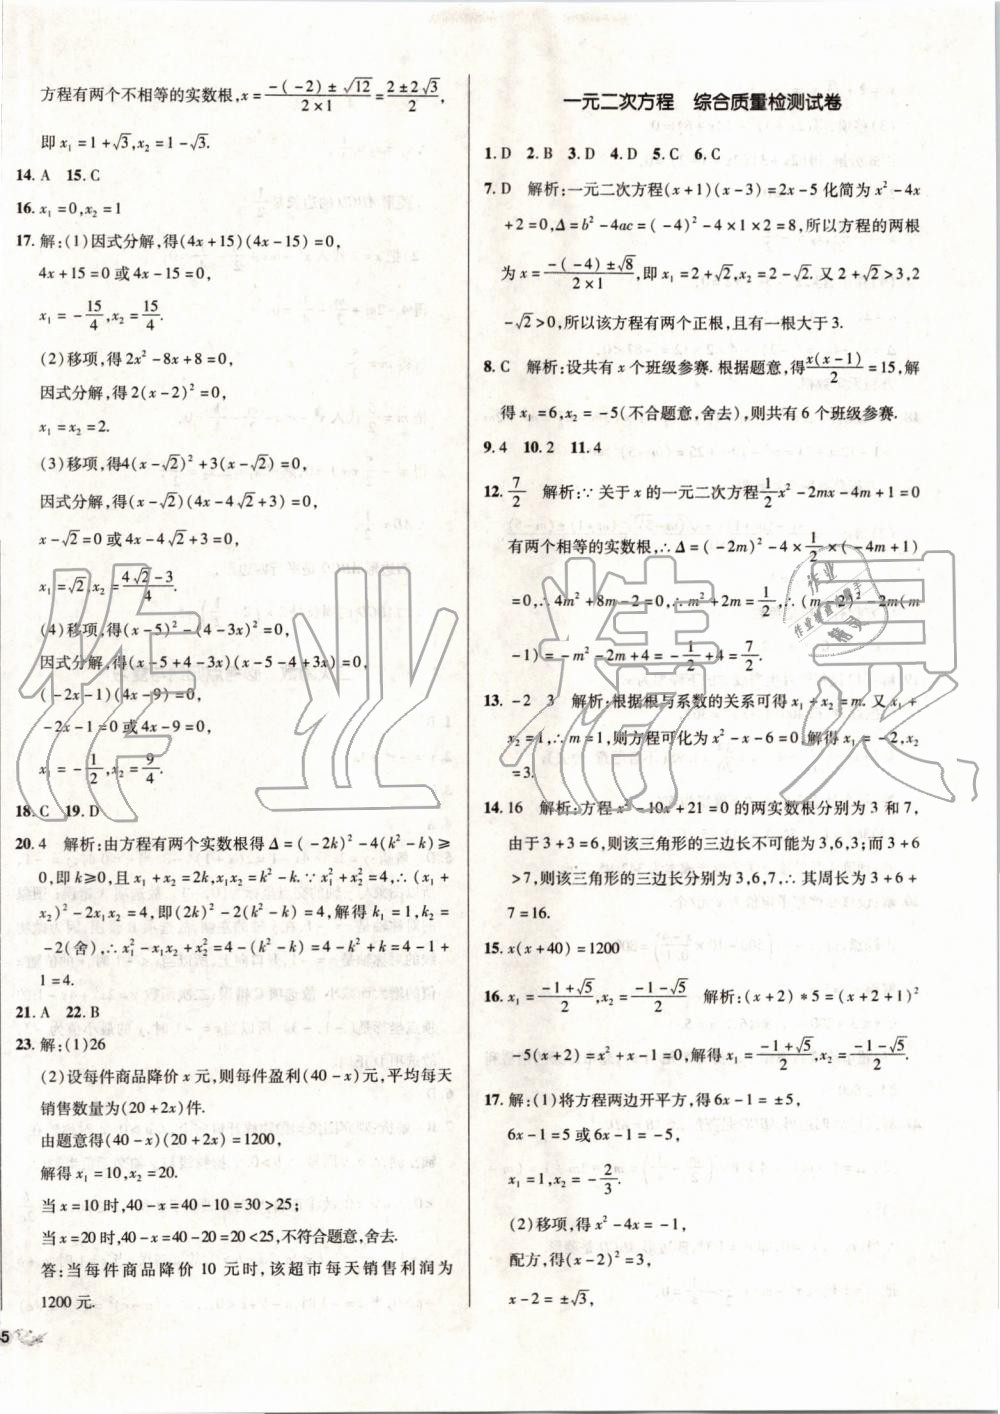 方程有两个不相等的实数根,x=\frac{-(-2)±√12}{2×1}=\frac{2±2√3}{2},
即 x₁=1+√3,x₂=1-√3.
14. A 15. C
16. x₁=0,x₂=1
17. 解:(1)因式分解,得(4x+15)(4x-15)=0,
4x+15=0 或 4x-15=0,
x₁=-\frac{15}{4},x₂=\frac{15}{4}.
(2)移项,得 2x²-8x+8=0,
因式分解,得 2(x-2)²=0,
x₁=x₂=2.
(3)移项,得4(x-√2)²+3(x-√2)=0,
因式分解,得(x-√2)(4x-4√2+3)=0,
x-√2=0 或 4x-4√2+3=0,
x₁=√2,x₂=\frac{4√2-3}{4}.
(4)移项,得(x-5)²-(4-3x)²=0,
因式分解,得(x-5+4-3x)(x-5-4+3x)=0,
(-2x-1)(4x-9)=0,
-2x-1=0 或 4x-9=0,
x₁=-\frac{1}{2},x₂=\frac{9}{4}.
18. C 19. D
20. 4 解析:由方程有两个实数根得 Δ=(-2k)²-4(k²-k)
≥0,即 k≥0,且 x₁+x₂=2k,x₁x₂=k²-k.∵x₁²+x₂²=(x₁+
x₂)²-2x₁x₂=4,即(2k)²-2(k²-k)=4,解得 k₁=1,k₂=
-2(舍),∴x₁²-x₁x₂+x₂²=4-(k²-k)=4-k²+k=4-1+
1=4.
21. A 22. B
23. 解:(1)26
(2)设每件商品降价 x 元,则每件盈利(40-x)元,平均每天
销售数量为(20+2x)件.
由题意得(40-x)(20+2x)=1200,
解得 x₁=10,x₂=20.
当 x=10 时,40-x=40-10=30>25;
当 x=20 时,40-x=40-20=20<25,不符合题意,舍去.
答:当每件商品降价 10 元时,该超市每天销售利润为
1200 元.
一元二次方程 综合质量检测试卷
1. D 2. B 3. D 4. D 5. C 6. C
7. D 解析:一元二次方程(x+1)(x-3)=2x-5 化简为 x²-4x
+2=0,Δ=b²-4ac=(-4)²-4×1×2=8,所以方程的两根
为 x=\frac{-(-4)±√8}{2×1},即 x₁=2+√2,x₂=2-√2. 又 2+√2>3,2
-√2>0,所以该方程有两个正根,且有一根大于 3.
8. C 解析:设共有 x 个班级参赛.根据题意,得\frac{x(x-1)}{2}=15,解
得 x₁=6,x₂=-5(不合题意,舍去),则共有 6 个班级参赛.
9. 4 10. 2 11. 4
12. \frac{7}{2} 解析:∵ 关于 x 的一元二次方程\frac{1}{2}x²-2mx-4m+1=0
有两个相等的实数根,∴Δ=(-2m)²-4×\frac{1}{2}×(-4m+1)
=0,∴4m²+8m-2=0,∴m²+2m=\frac{1}{2},∴(m-2)²-2m(m
-1)=-m²-2m+4=-\frac{1}{2}+4=\frac{7}{2}.
13. -2 3 解析:根据根与系数的关系可得 x₁+x₂=m. 又 x₁+
x₂=1,∴m=1,则方程可化为 x²-x-6=0. 解得 x₁=-2,x₂
=3.
14. 16 解析:方程 x²-10x+21=0 的两实数根分别为 3 和 7,
由于 3+3=6,则该三角形的三边长不可能为 3,3,6;而 3+6
>7,则该三角形的三边长分别为 3,6,7,∴其周长为 3+6+
7=16.
15. x(x+40)=1200
16. x₁=\frac{-1+√5}{2},x₂=\frac{-1-√5}{2} 解析:(x+2)*5=(x+2)²
-5(x+2)=x²+x-6=-5,解得 x₁=\frac{-1+√5}{2},x₂=\frac{-1-√5}{2}.
17. 解:(1)将方程两边开平方,得 6x-1=±5,
6x-1=5 或 6x-1=-5,
x₁=1,x₂=-\frac{2}{3}.
(2)移项,得 x²-4x=-1,
配方,得(x-2)²=3,
x-2=±√3,
作业精灵